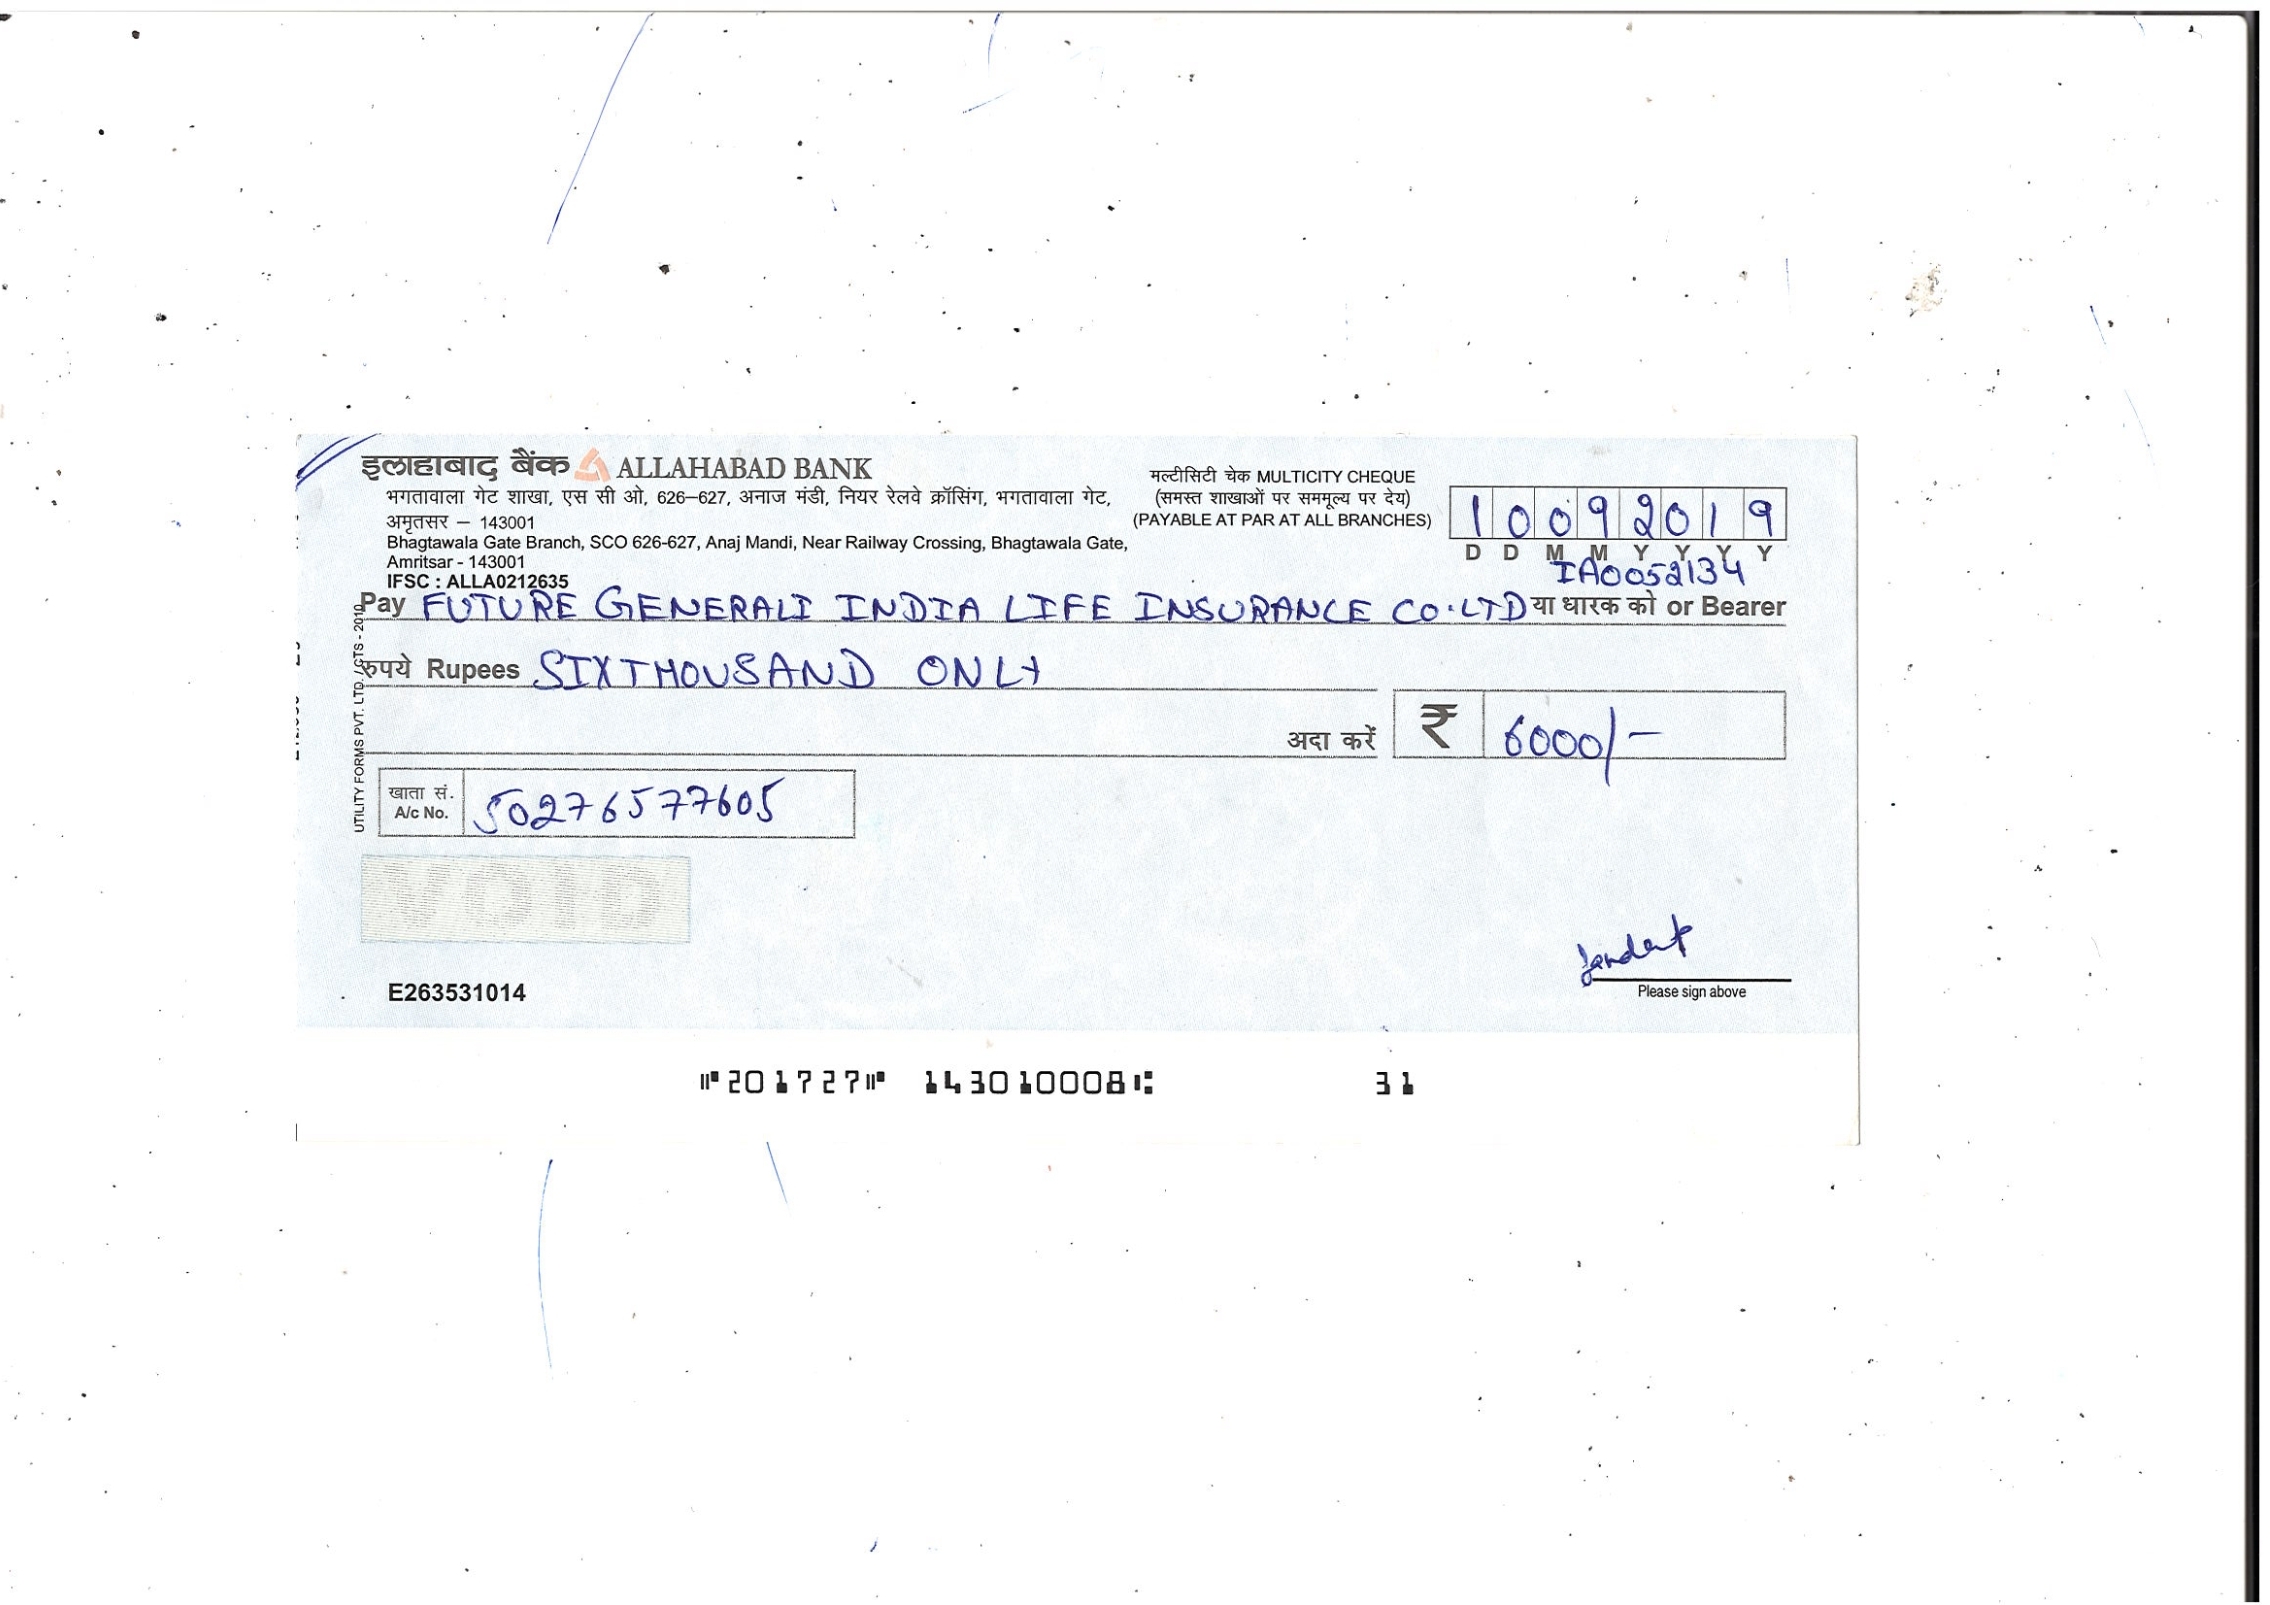 इलाहाबाद बैंक ALLAHABAD BANK
भगतावाला गेट शाखा, एस सी ओ, 626–627, अनाज मंडी, नियर रेलवे क्रॉसिंग, भगतावाला गेट,
अमृतसर – 143001
Bhagtawala Gate Branch, SCO 626-627, Anaj Mandi, Near Railway Crossing, Bhagtawala Gate,
Amritsar - 143001
IFSC : ALLA0212635
मल्टीसिटी चेक MULTICITY CHEQUE
(समस्त शाखाओं पर सममूल्य पर देय)
(PAYABLE AT PAR AT ALL BRANCHES)
1 0 0 9 2 0 1 9
D D M M Y Y Y Y
IA0052134
Pay FUTURE GENERALI INDIA LIFE INSURANCE CO.LTD या धारक को or Bearer
रुपये Rupees SIXTHOUSAND ONLY
अदा करें ₹ 6000/-
खाता सं.
A/c No. 50276577605
UTILITY FORMS PVT. LTD. / CTS - 2010
VOID
E263531014
Please sign above
⑈201727⑈ 143010008⑆ 31